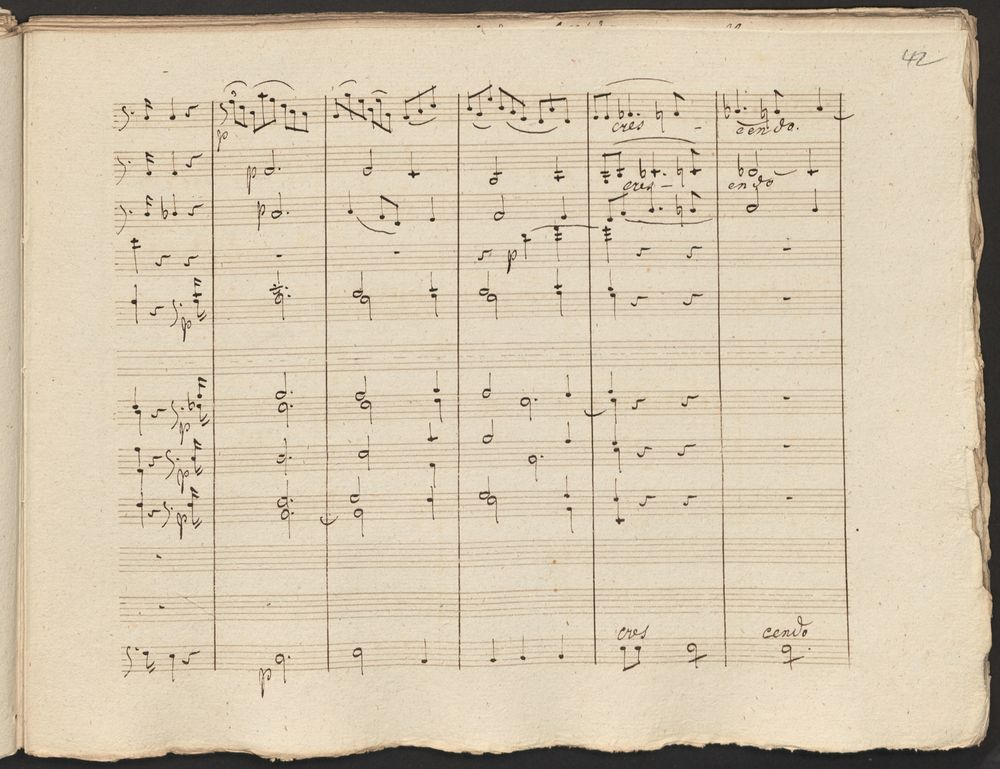 42
3
p
cres - cendo.
p
cres - endo
p
p
p
p
p
p
cres cendo
p